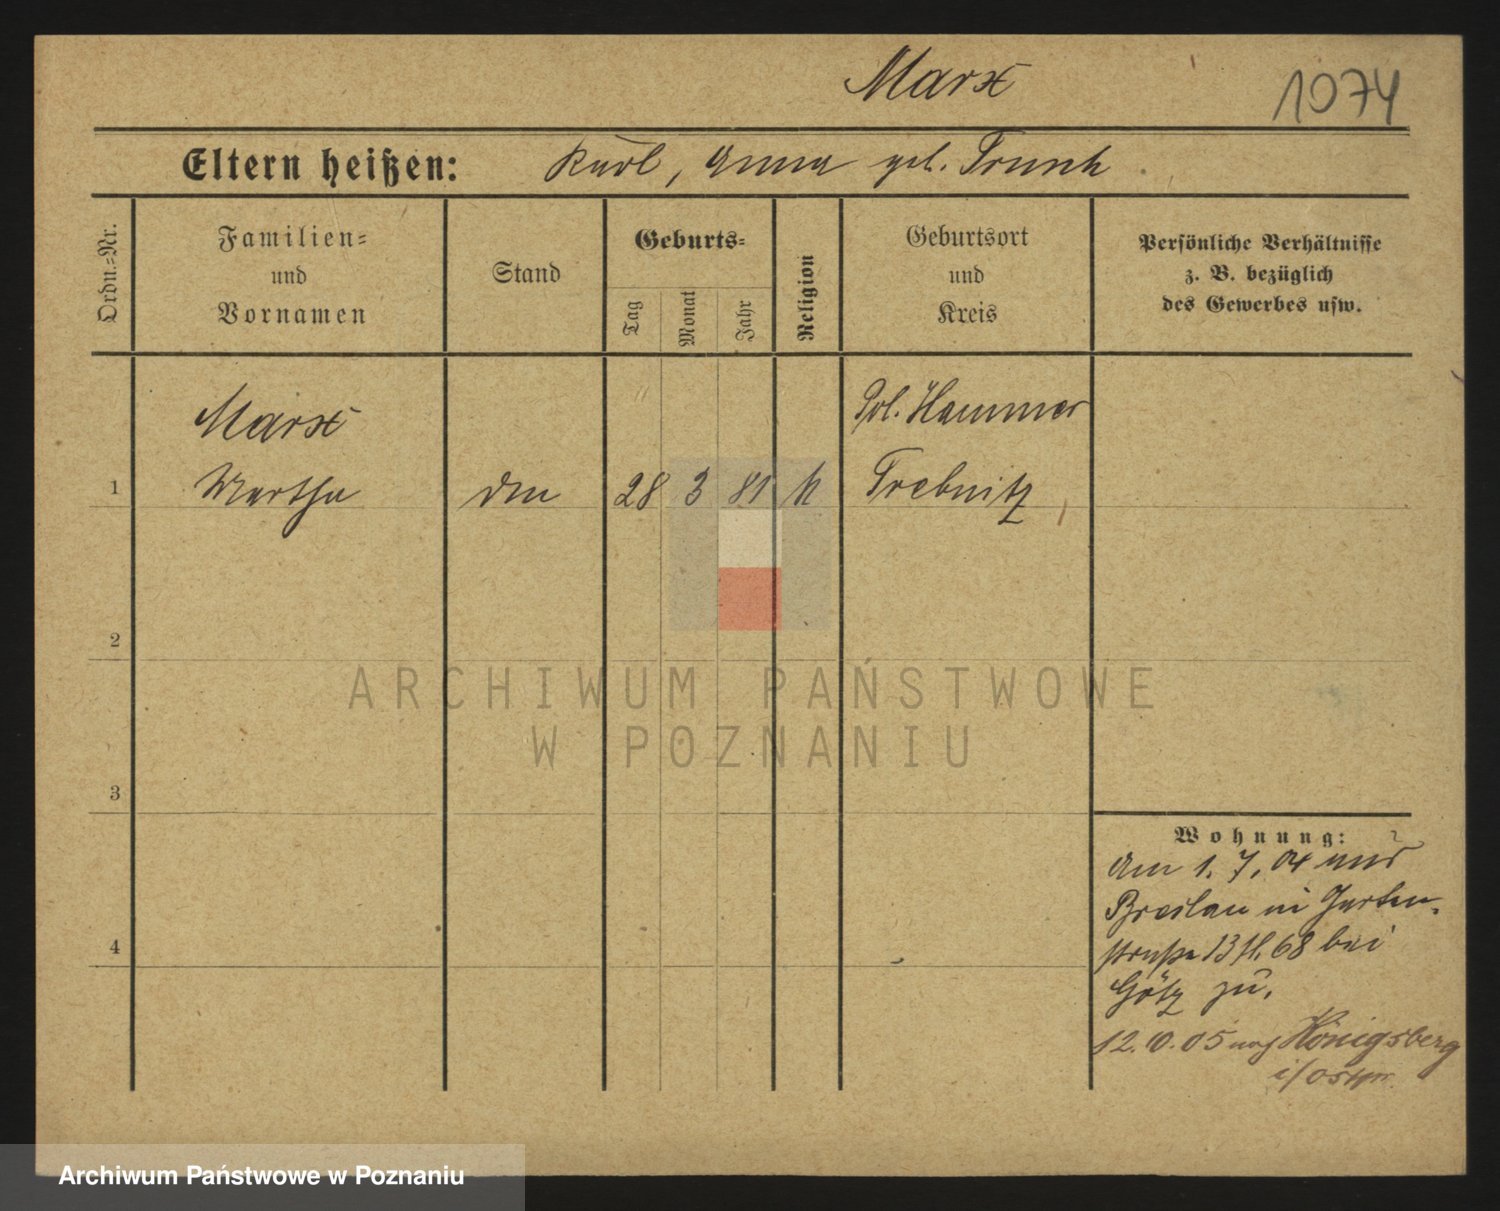 Marx
1074
Eltern heißen: Karl, Anna geb. Trunk
Ordn.-Nr.
Familien-
und
Vornamen
Stand
Geburts-
Tag
Monat
Jahr
Religion
Geburtsort
und
Kreis
Persönliche Verhältnisse
z. B. bezüglich
des Gewerbes usw.
Marx
Pol. Hammer
1 Martha 28 3 81 k Trebnitz
2
ARCHIWUM PAŃSTWOWE
W POZNANIU
3
Wohnung:
Am 1. 7. 04 aus
Breslau in Garten-
straße 13 II. 68 bei
Götz zu.
4
12. 10. 05 nach Königsberg
i/Ostpr.
Archiwum Państwowe w Poznaniu